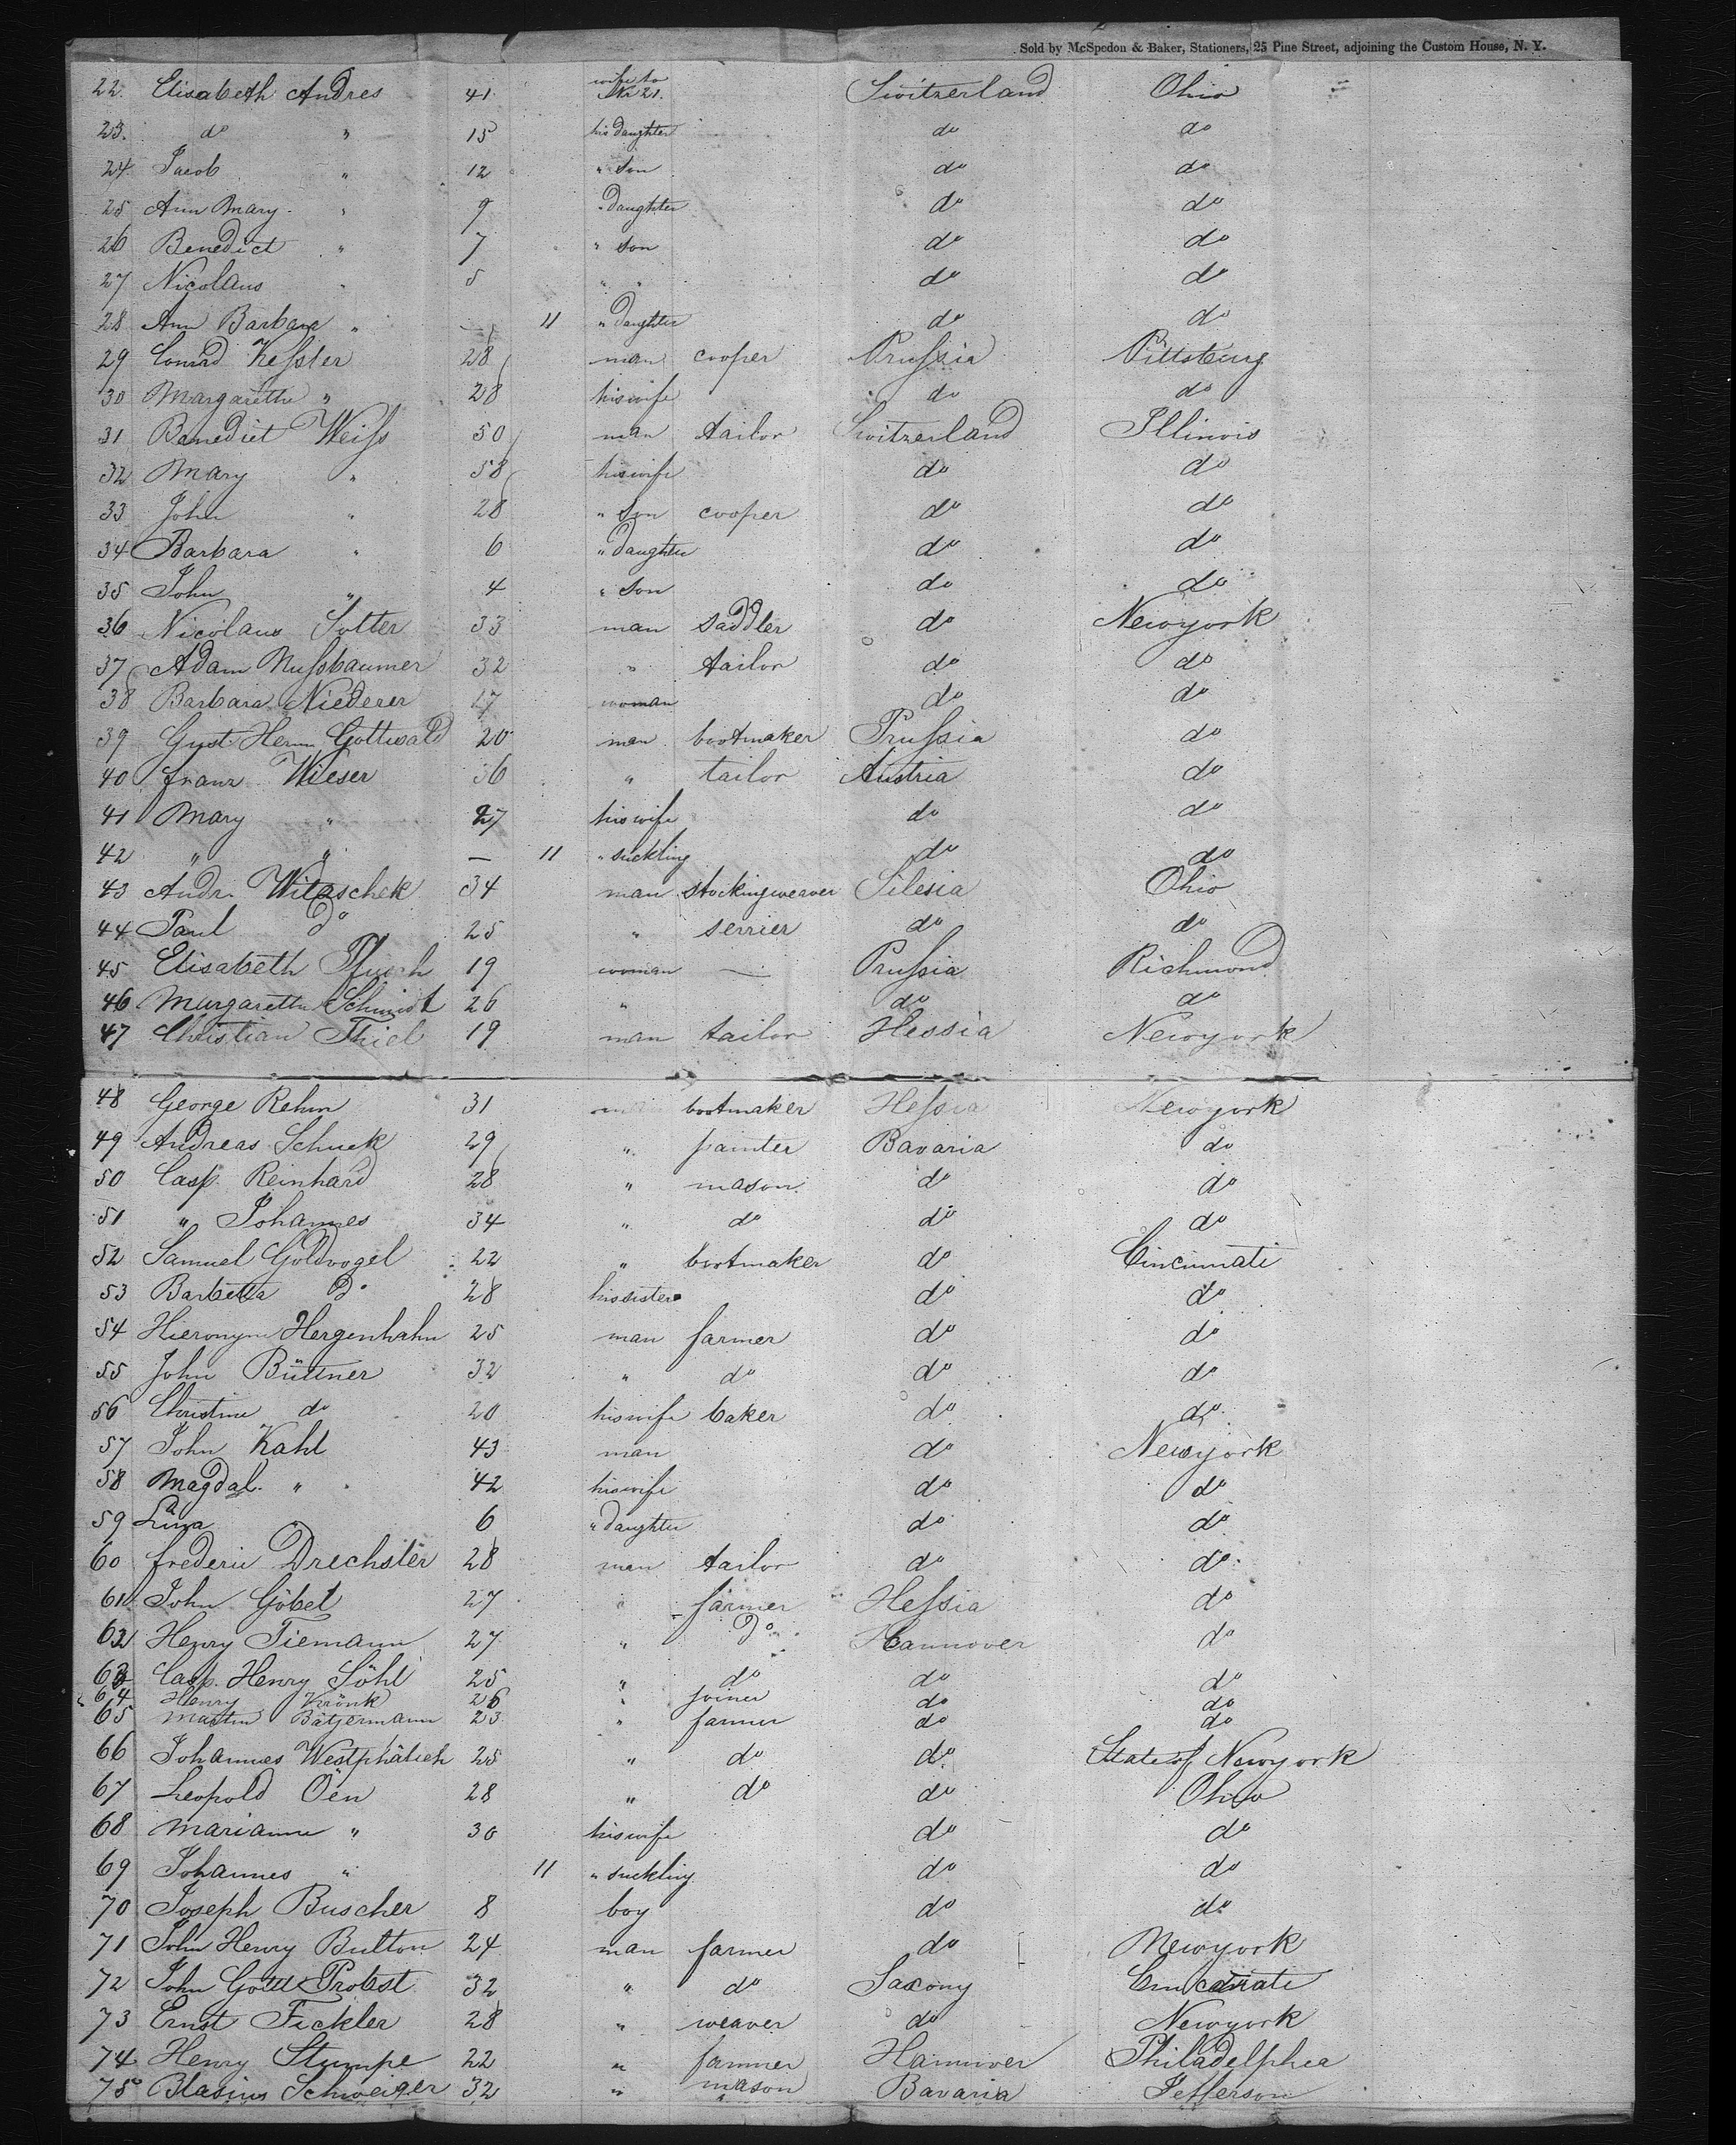 Sold by McSpedon & Baker, Stationers, 25 Pine Street, adjoining the Custom House, N. Y.
22. Elisabeth Andres 41 wife to Nr 21. Switzerland Ohio
23. do " 15 his daughter do do
24 Jacob " 12 " son do do
25 Ann Mary " 9 " daughter do do
26 Benedict " 7 " son do do
27 Nicolaus " 5 " " do do
28 Ann Barbara " — 11 " daughter do do
29 Conrad Keſsler 28 man cooper Pruſsia Pittsburg
30 Margarethe " 28 his wife do do
31 Benedict Weiſs 50 man tailor Switzerland Illinois
32 Mary " 58 his wife do do
33 John " 28 " son cooper do do
34 Barbara " 6 " daughter do do
35 John " 4 " son do do
36 Nicolaus Sutter 33 man saddler do Newyork
37 Adam Nuſsbaumer 32 " tailor do do
38 Barbara Niederer 17 woman do do
39 Gust. Herm. Gottwald 20 man bootmaker Pruſsia do
40 Franz Wieser 36 " tailor Austria do
41 Mary " 27 his wife do do
42 " " — 11 " suckling do do
43 Andr. Witaschek 34 man stockingweaver Silesia Ohio
44 Paul do 25 " serrier do do
45 Elisabeth 19 woman — Pruſsia Richmond
46 Margarethe Schmidt 26 " do do
47 Christian Thiel 19 man tailor Hessia Newyork
48 George Rehm 31 man bootmaker Heſsia Newyork
49 Andreas Schuck 29 " painter Bavaria do
50 Casp. Reinhard 28 " mason do do
51 " Johannes 34 " do do do
52 Samuel Goldvogel 22 " bootmaker do Cincinnati
53 Barbetta do 28 his sister do do
54 Hieronym Hergenhahn 25 man farmer do do
55 John Büttner 32 " do do do
56 Christine do 20 his wife baker do do
57 John Kahl 43 man do Newyork
58 Magdal. " 42 his wife do do
59 Lina 6 " daughter do do
60 Frederic Drechsler 28 man tailor do do
61 John Göbel 27 " farmer Heſsia do
62 Henry Tiemann 27 " do Hannover do
63 Casp. Henry Söhl 25 " do do do
64 Henry Krönk 26 " joiner do do
65 Martin Bätjermann 23 " farmer do do
66 Johannes Westphälich 25 " do do State of Newyork
67 Leopold Oen 28 " do do Ohio
68 Marianne " 30 his wife do do
69 Johannes " 11 " suckling do do
70 Joseph Buscher 8 boy do do
71 John Henry Bulton 24 man farmer do Newyork
72 John Gottl Probst 32 " do Saxony
73 Ernst Fickler 28 " weaver do Newyork
74 Henry Stumpe 22 " farmer Hannover Philadelphea
75 Blasius Schweiger 32 " mason Bavaria Jefferson